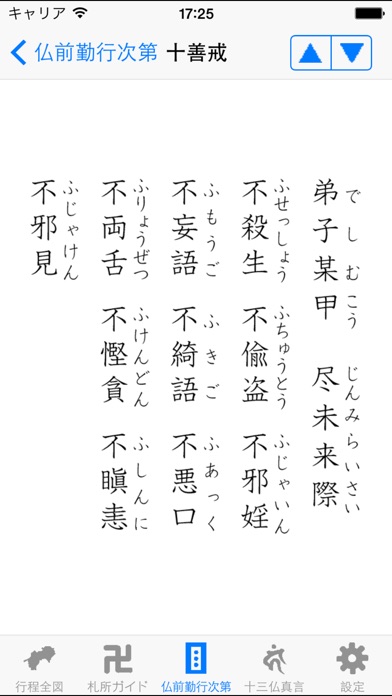 キャリア 17:25
仏前勤行次第 十善戒
でしむこう じんみらいさい
弟子某甲 尽未来際
ふせっしょう ふちゅうとう ふじゃいん
不殺生 不偸盗 不邪婬
ふもうご ふきご ふあっく
不妄語 不綺語 不悪口
ふりょうぜつ ふけんどん ふしんに
不両舌 不慳貪 不瞋恚
ふじゃけん
不邪見
行程全図 札所ガイド 仏前勤行次第 十三仏真言 設定